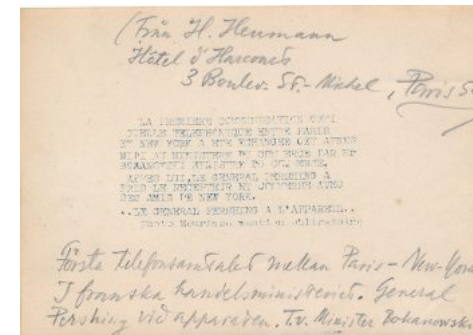 (Från H. Heumann
Hôtel d'Harcourt
3 Boulev. St.-Michel, Paris 5
LA PREMIERE CONVERSATION OFFI
CIELLE TELEPHONIQUE ENTRE PARIS
ET NEW YORK A ETE ECHANGEE CET APRES
MIDI AU MINISTERE DU COMMERCE PAR Mr
BOKANOWSKI MINISTRE DU COMMERCE.
APRES LUI, LE GENERAL PERSHING A
PRIS LE RECEPTEUR ET CONVERSE AVEC
DES AMIS DE NEW YORK.
..LE GENERAL PERSHING A L'APPAREIL..
Photo Meurisse mention obligatoire
Första telefonsamtalet mellan Paris – New-York
I franska handelsministeriet. General
Pershing vid apparaten. T.v. Minister Bokanowski